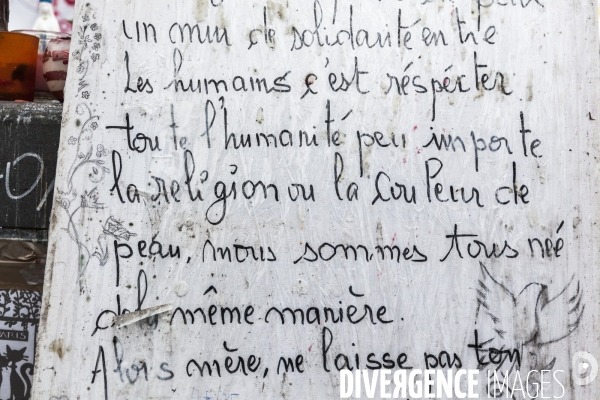 un mur de solidarité entre
Les humains c'est réspécter
toute l'humanité peu importe
la religion ou la couleur de
peau, nous sommes tous neé
de la même manière.
Alors mère, ne laisse pas ton
PARIS
DIVERGENCE IMAGES.COM